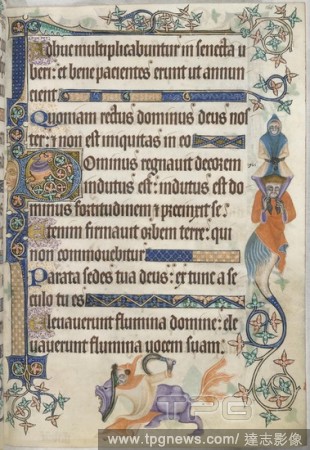 Adhuc multiplicabuntur in senecta u
beri: et bene pacientes erunt ut annun
cient.
Quoniam rectus dominus deus nos
ter: et non est iniquitas in eo
Dominus regnauit decorem
indutus est: indutus est do
minus fortitudinem et precinxit se.
Etenim firmauit orbem terre: qui
non commouebitur
Parata sedes tua deus: ex tunc a se
culo tu es
Eleuauerunt flumina domine: ele
uauerunt flumina uocem suam.
TPG
www.tpgnews.com/達志影像